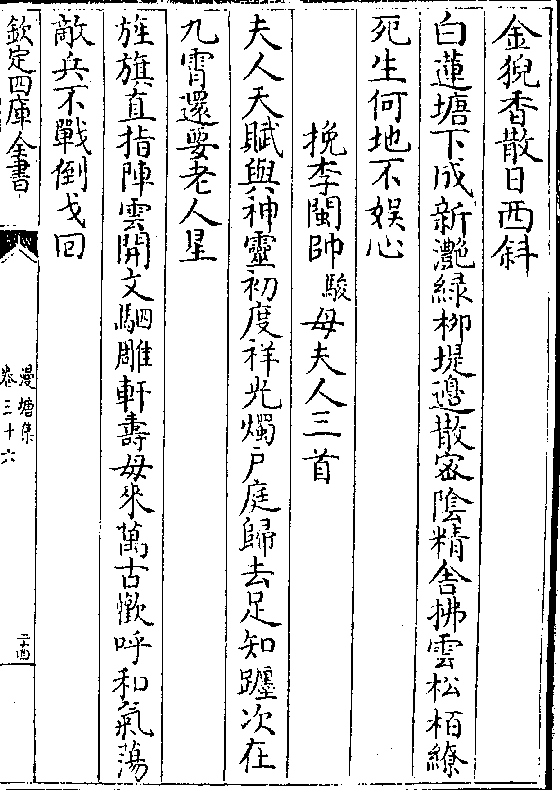 金猊香散日西斜
白蓮塘下成新灔綠栁堤邉散宻隂精舎拂雲松栢繚
死生何地不娱心
挽李閩帥駿母夫人三首
夫人天賦與神靈初度祥光燭户庭歸去足知躔次在
九霄還要老人星
旌旗直指陣雲開文駟雕軒壽母來萬古懽呼和氣蕩
敵兵不戰倒戈回
欽定四庫全書
漫塘集
卷三十六
二十四